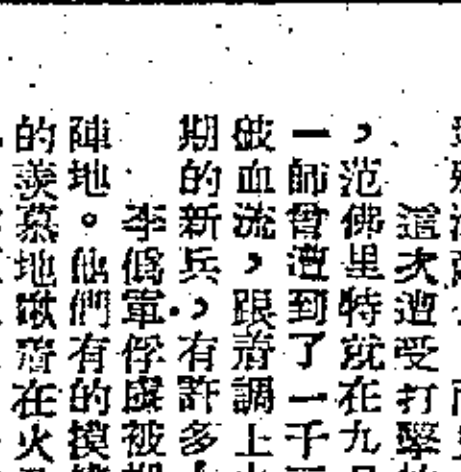 這次遭受打擊
，范佛里特就在九
一師曾遭到了一千
破血流，跟着調上
期的新兵，有許多
李僞軍俘虜被
陣地。他們有的摸
的羨慕地瞅着在火